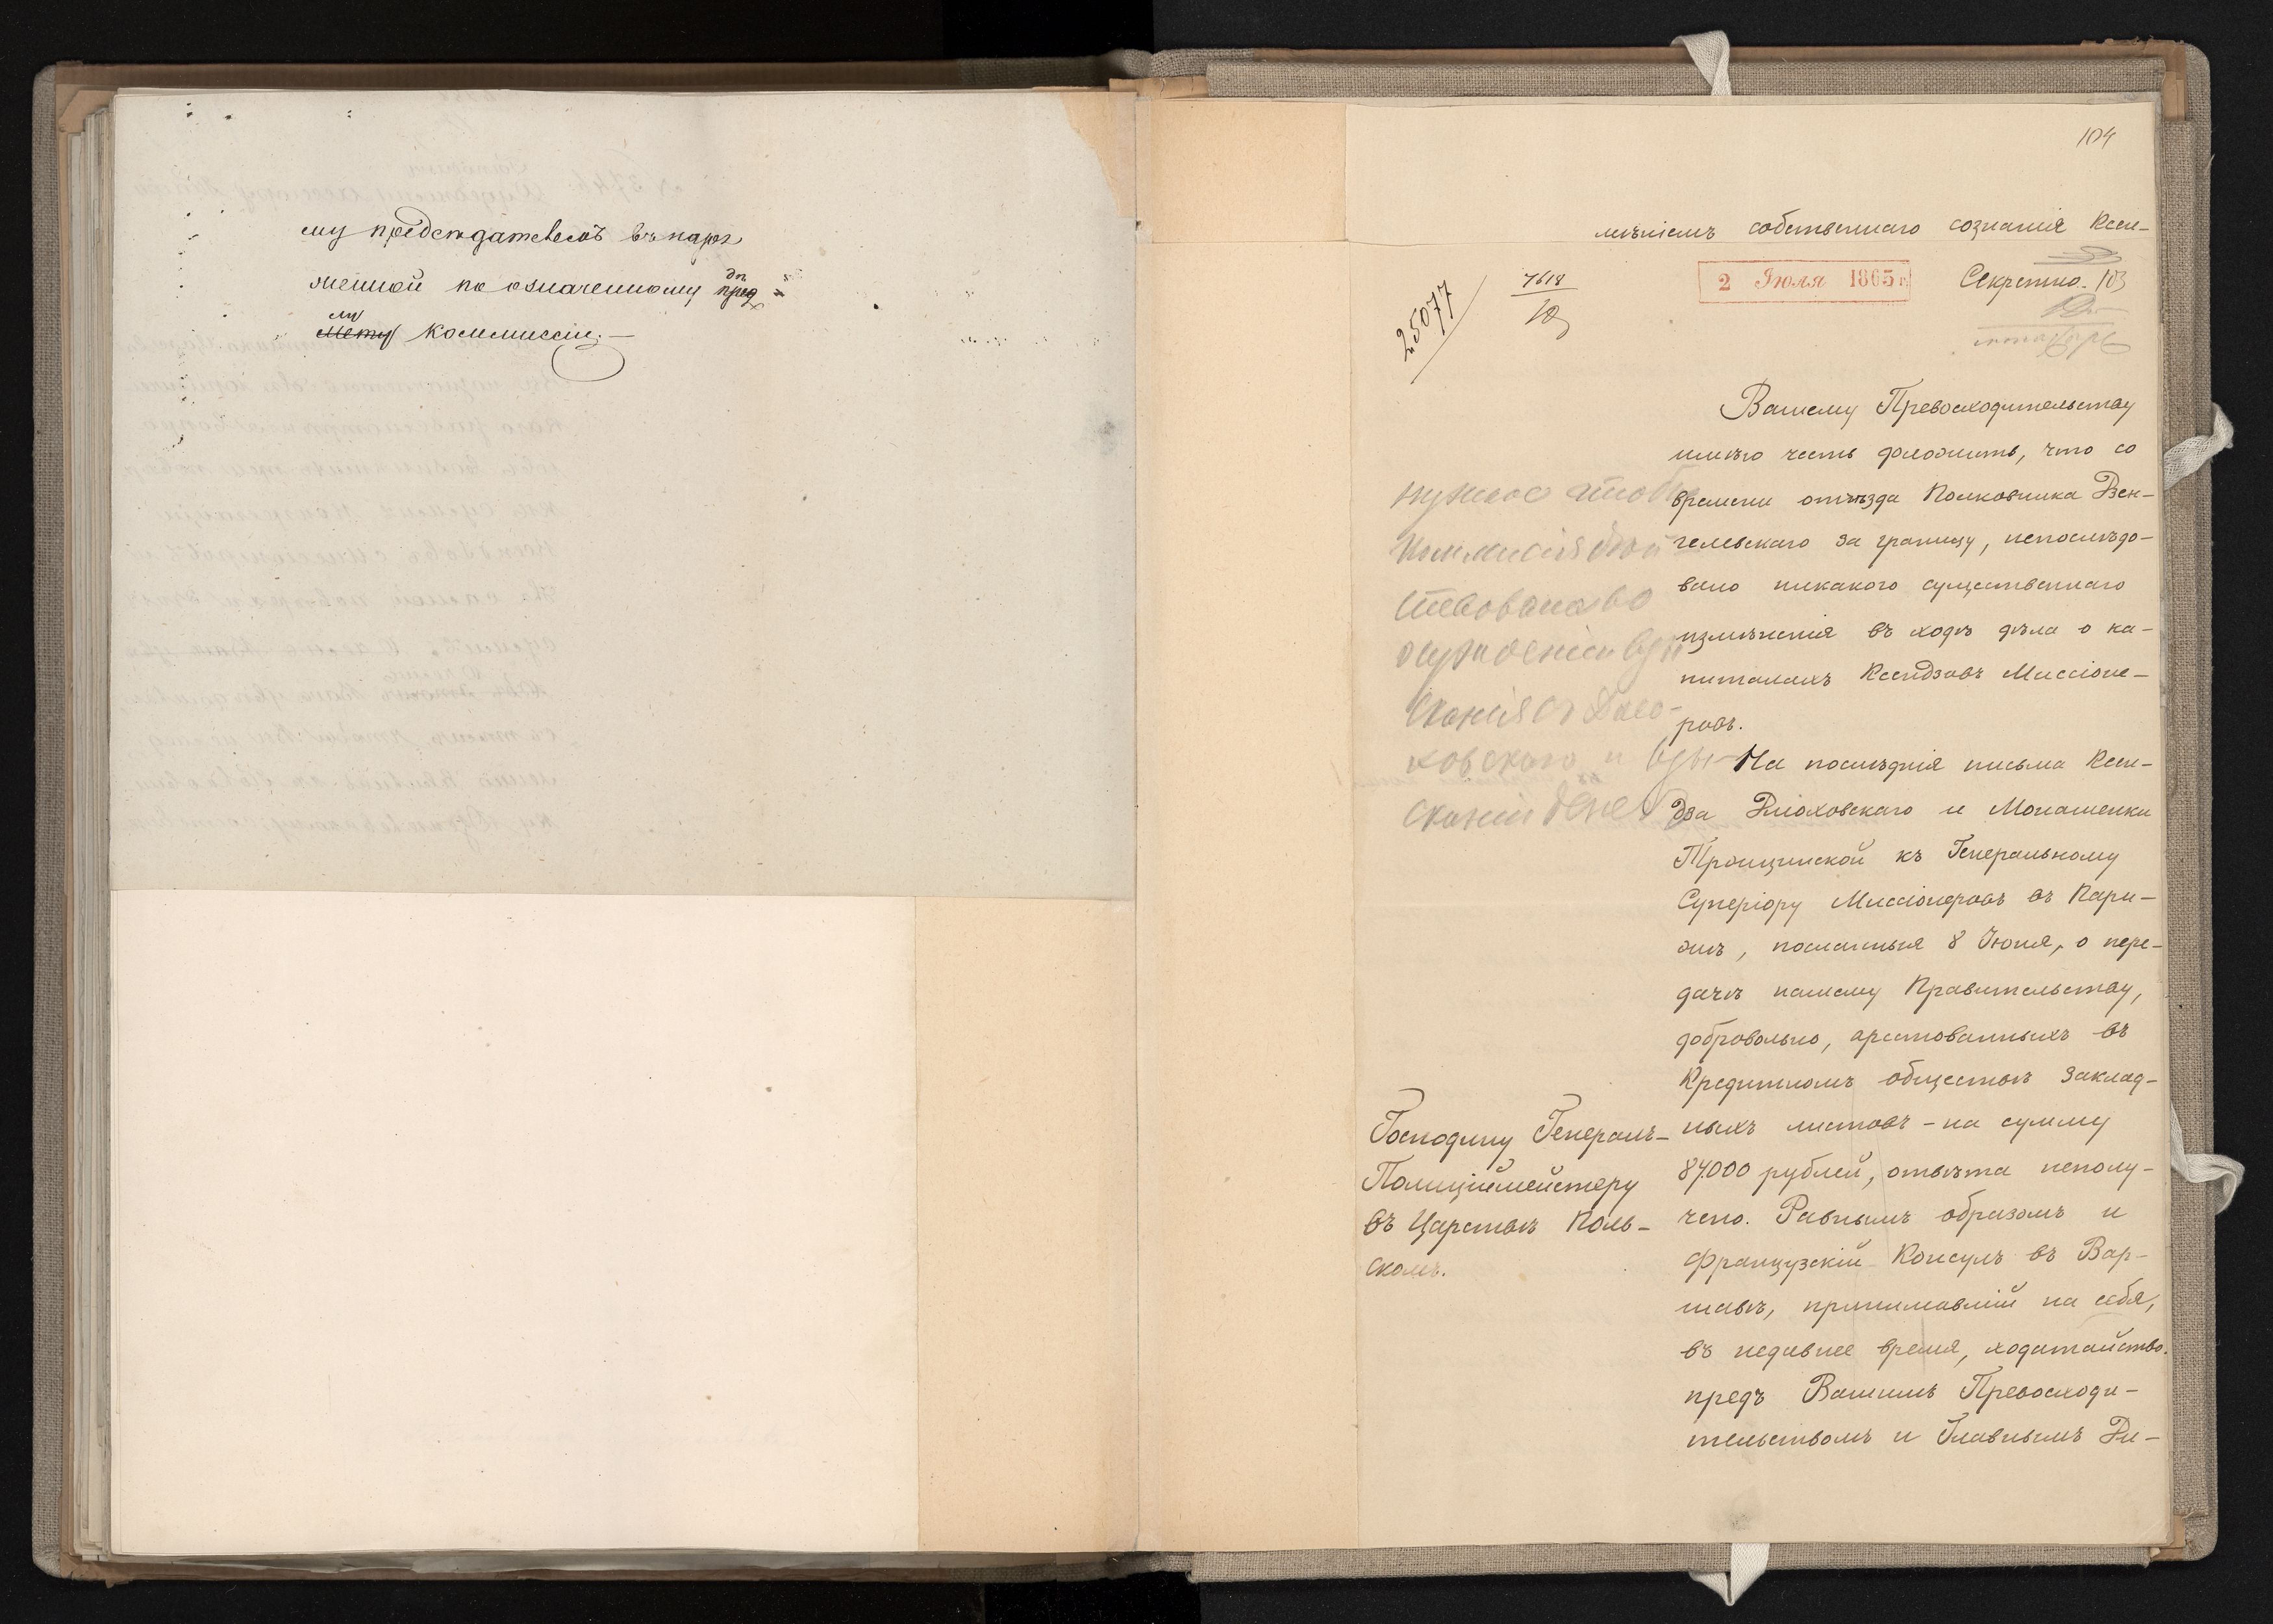 ему председателемъ въ наря
женной по означенному пред дѣ
мету лу Коммиссіи.—
104
мѣніемъ собственнаго сознанія Ксен-
25077
7618
2 Іюля 1865 г.
Секретно. 103
Вашему Превосходительству
имѣю честь доложить, что со
времени отъѣзда Полковника Вен-
гельскаго за границу, непослѣдо-
вало никакого существеннаго
измѣненія въ ходѣ дѣла о ка-
питалахъ Ксендзовъ Миссіоне-
ровъ.
На послѣднія письма Ксен-
дза Дмоховскаго и Монашенки
Троицинской къ Генеральному
Суперіору Миссіонеровъ въ Пари-
жѣ, посланныя 8 Іюня, о пере-
дачѣ нашему Правительству,
добровольно, арестованныхъ въ
Кредитномъ обществѣ заклад-
ныхъ листовъ - на сумму
87.000 рублей, отвѣта неполу-
чено. Равнымъ образомъ и
Французскій Консулъ въ Вар-
шавѣ, принимавшій на себя,
въ недавнее время, ходатайство.
предъ Вашимъ Превосходи-
тельствомъ и Главнымъ Ди-
нужно чтобы
Коммисія
ковскаго и взы-
сканіи денег
Господину Генералъ-
Полиціймейстеру
въ Царствѣ Поль-
скомъ.